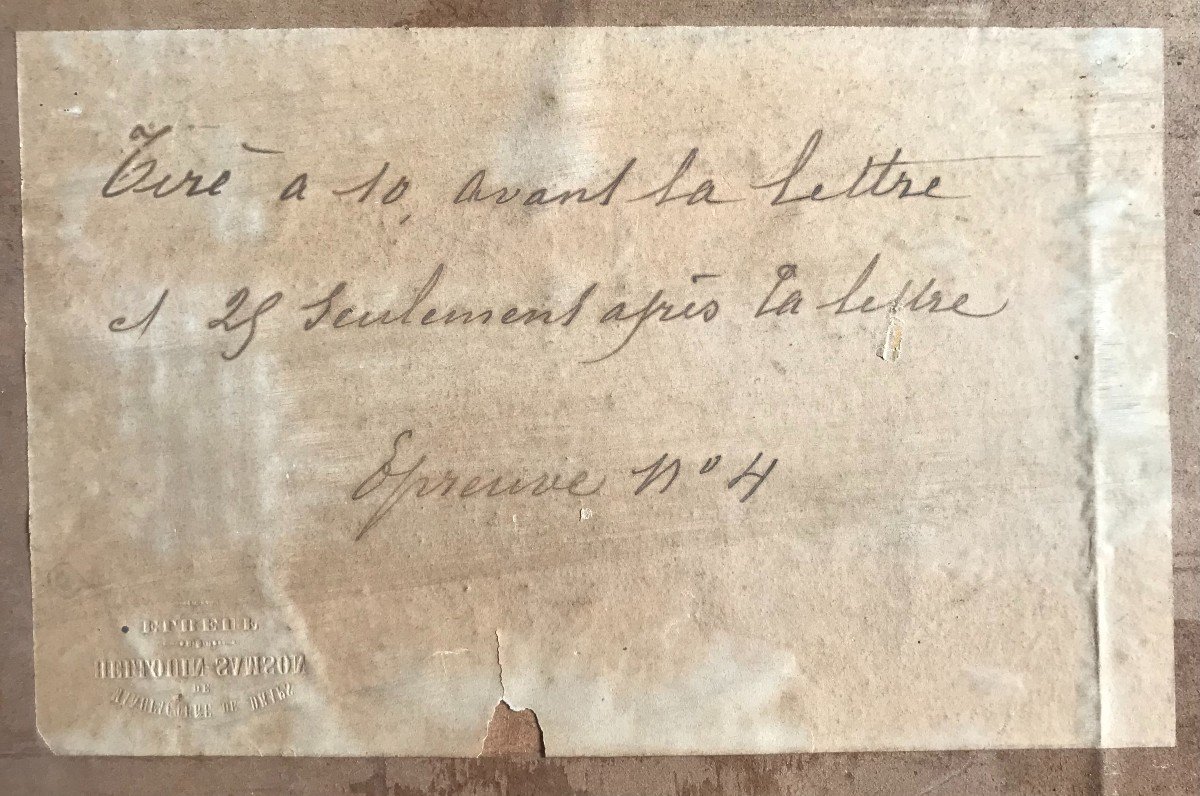 Tiré a 10, avant la lettre
et 25 seulement après la lettre
Epreuve No 4
SAMSON
DE